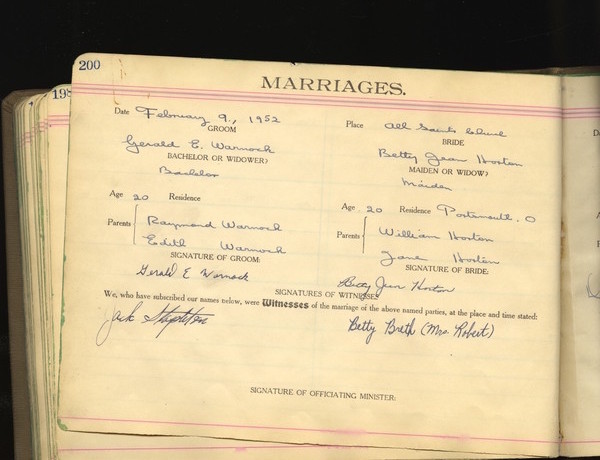 200
198
MARRIAGES.
Date February 9., 1952
Place All Saints Church
GROOM
BRIDE
Gerald E. Warnock
Betty Jean Horton
BACHELOR OR WIDOWER?
MAIDEN OR WIDOW?
Bachelor
Maiden
Age 20 Residence
Age 20 Residence Portsmouth, O
Parents Raymond Warnock
Edith Warnock
Parents William Horton
Jane Horton
SIGNATURE OF GROOM:
SIGNATURE OF BRIDE:
Gerald E Warnock
Betty Jean Horton
SIGNATURES OF WITNESSES
We, who have subscribed our names below, were Witnesses of the marriage of the above named parties, at the place and time stated:
Jack Stapleton
Betty Breth (Mrs. Robert)
SIGNATURE OF OFFICIATING MINISTER: